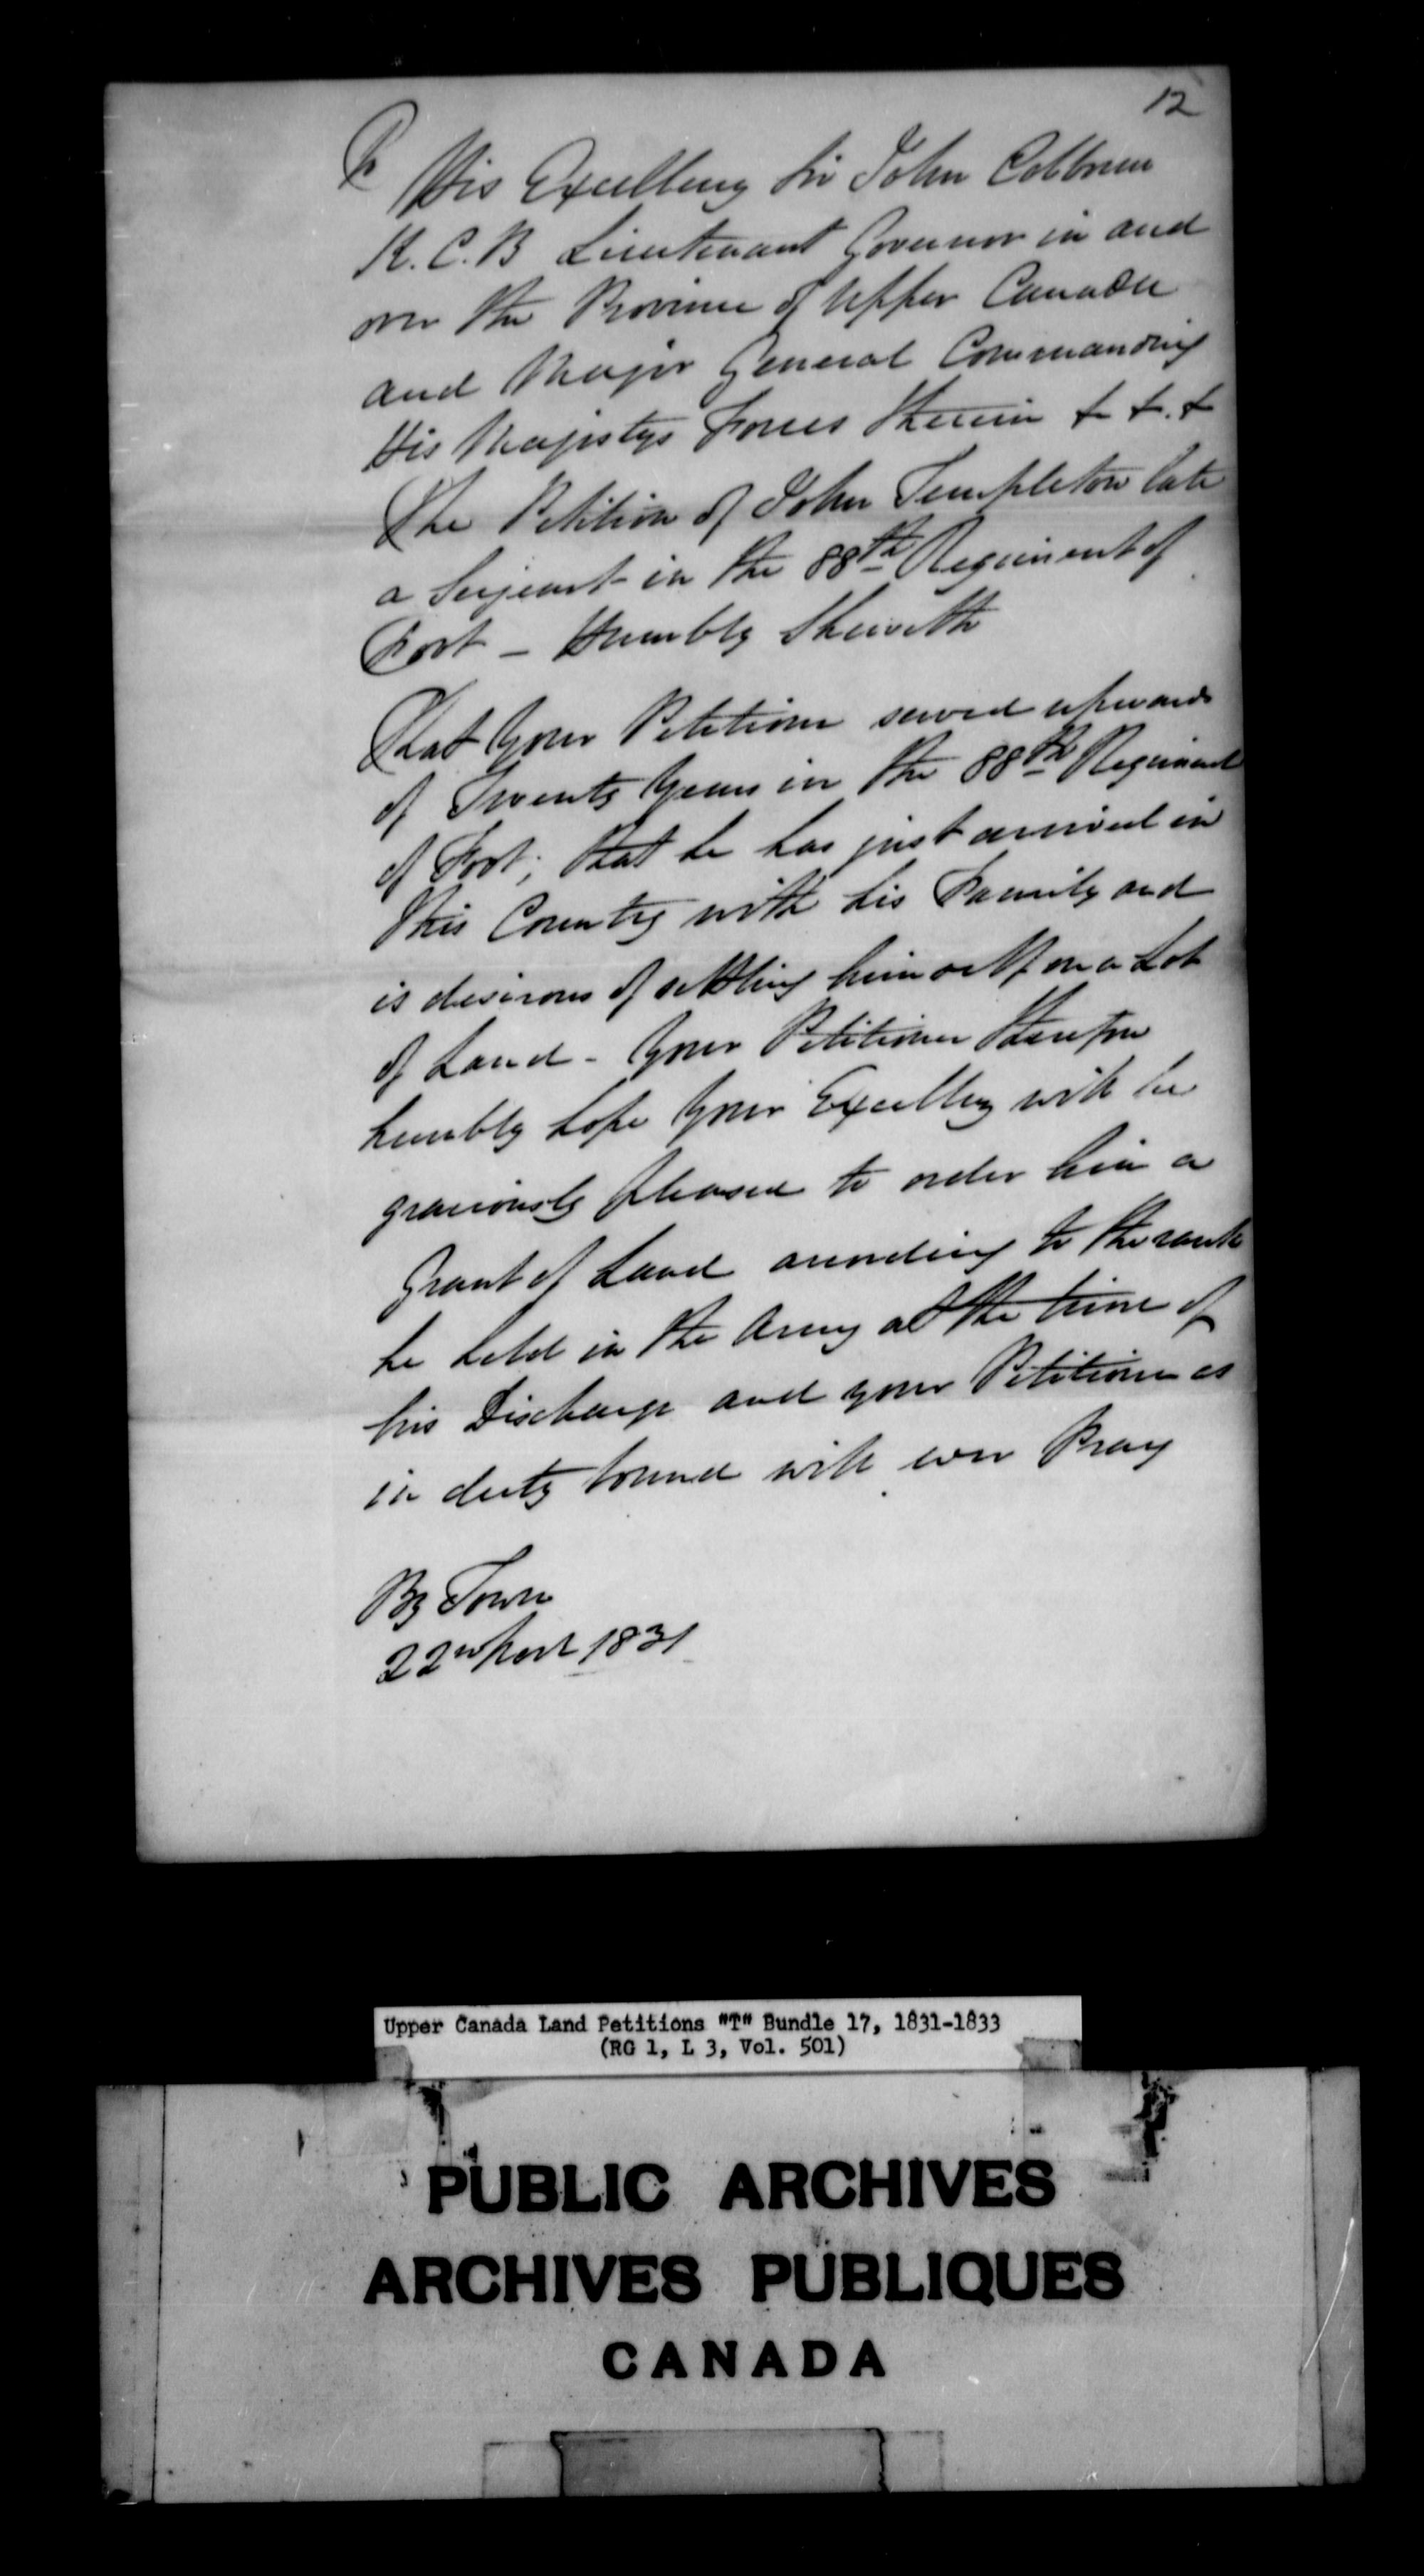 12
To His Excellency Sir John Colborne
K.C.B Lieutenant Governor in and
over the Province of Upper Canada
and Major General Commanding
His Majestys Forces therein & &. &
The Petition of John Templeton late
a Serjeant in the 88th Regiment of
Foot - Humbly Sheweth
That Your Petitioner served upwards
of Twenty Years in the 88th Regiment
of Foot; that he has just arrived in
this Country with his Family and
is desirous of settling himself on a Lot
of Land - Your Petitioner therefore
humbly hope Your Excellency will be
graciously pleased to order him a
Grant of Land according to the rank
he held in the Army at the time of
his Discharge and your Petitioner as
in duty bound will ever Pray
By Town
22n 1831
Upper Canada Land Petitions "T" Bundle 17, 1831-1833
(RG 1, L 3, Vol. 501)
PUBLIC ARCHIVES
ARCHIVES PUBLIQUES
CANADA